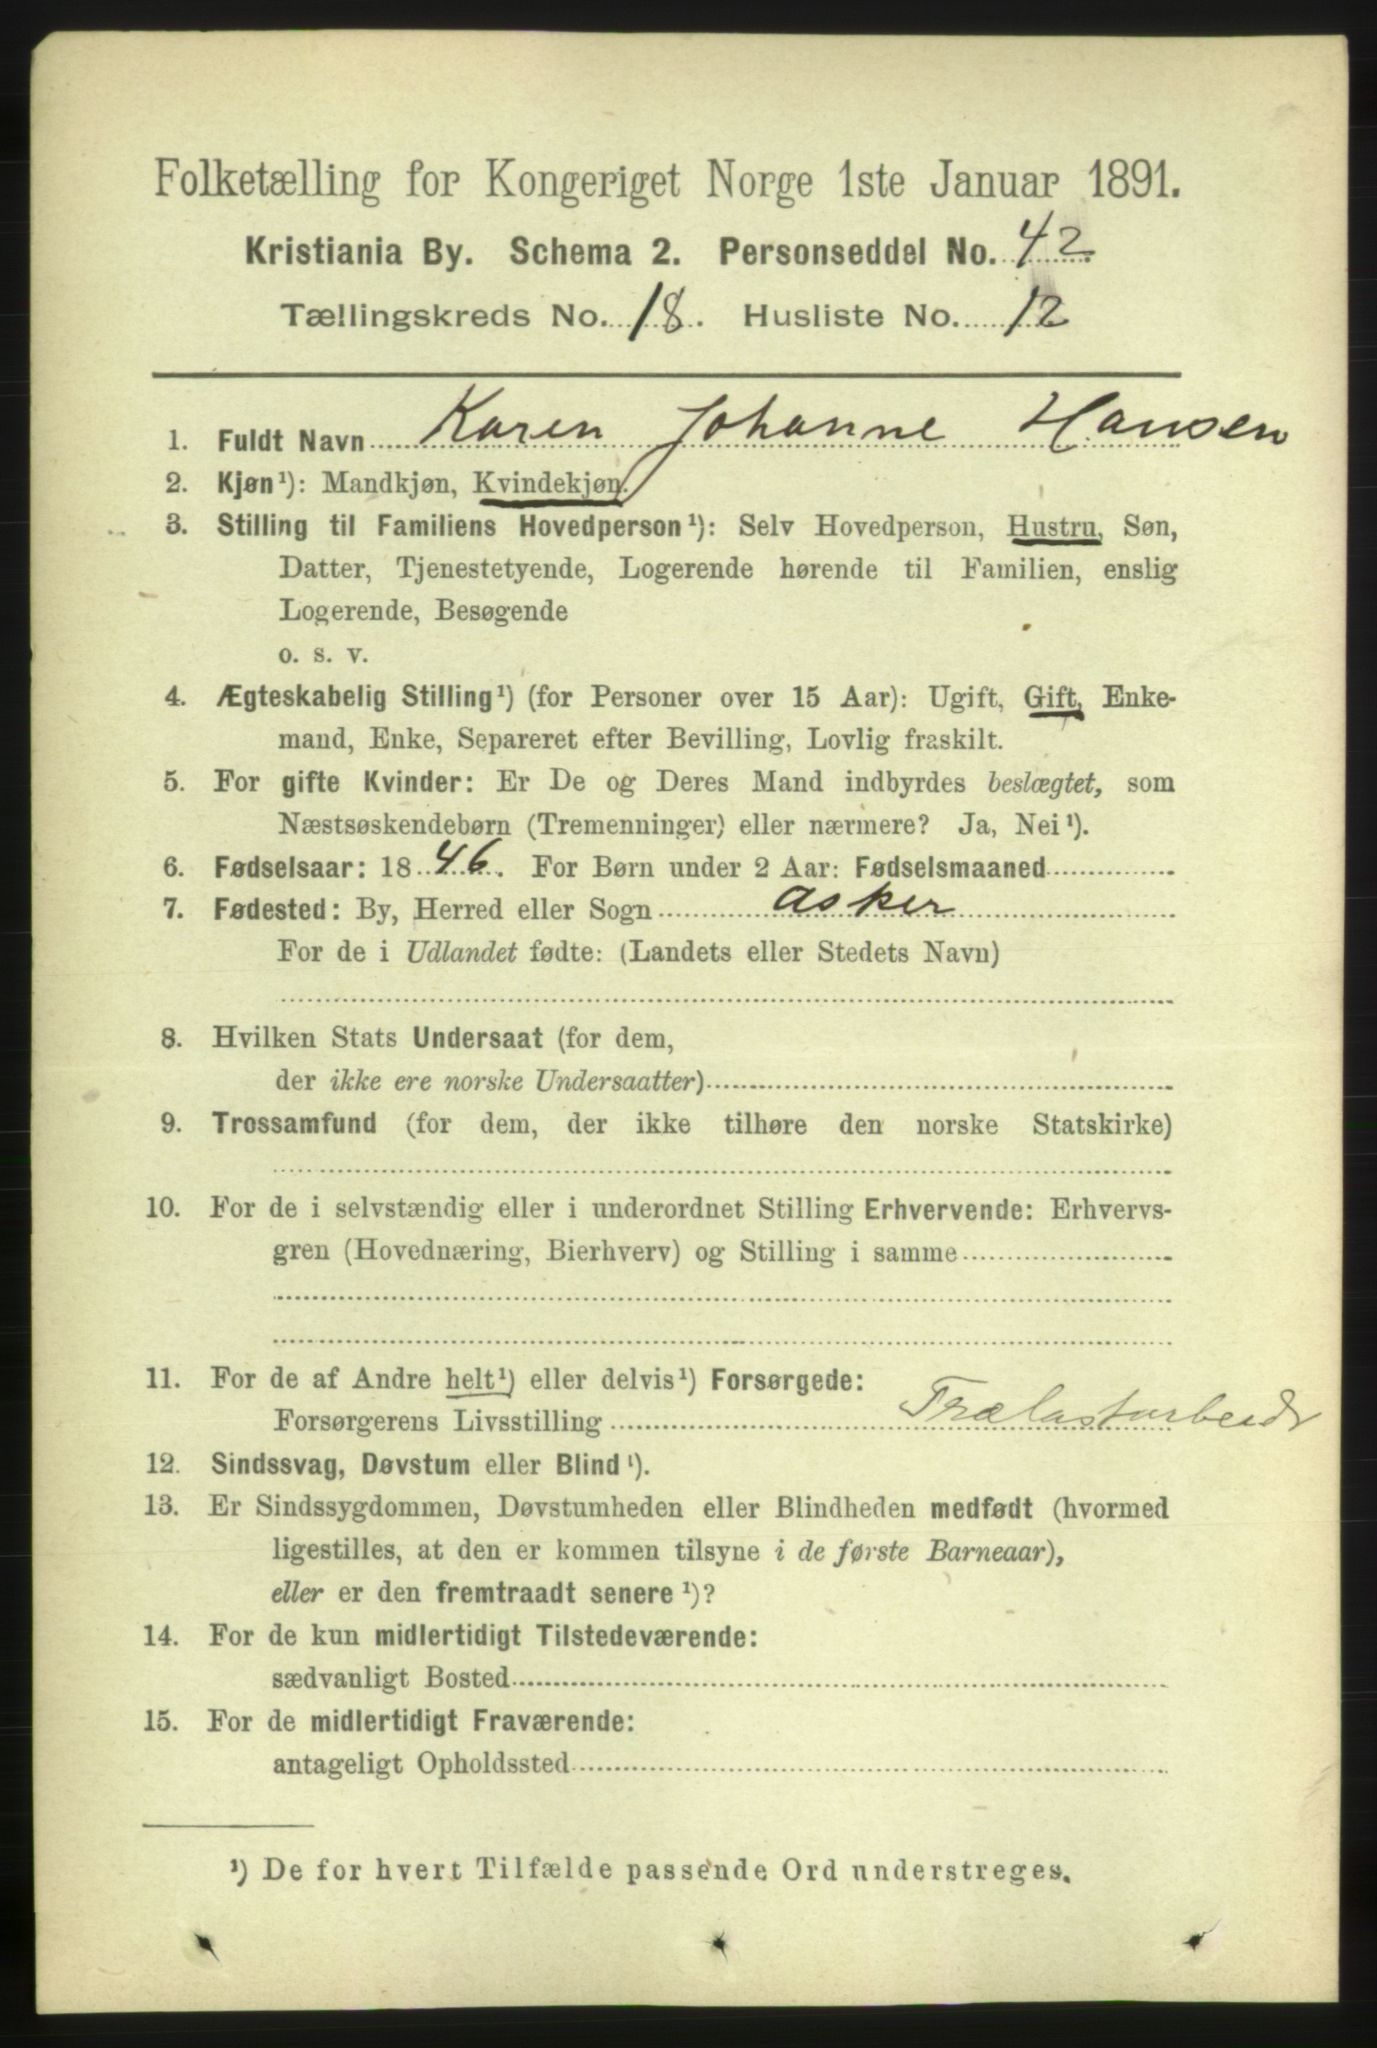 Folketælling for Kongeriget Norge 1ste Januar 1891.
Kristiania By. Schema 2. Personseddel No. 42
Tællingskreds No. 18. Husliste No. 12
1. Fuldt Navn Karen Johanne Hansen
2. Kjøn¹): Mandkjøn, Kvindekjøn.
3. Stilling til Familiens Hovedperson¹): Selv Hovedperson, Hustru, Søn,
Datter, Tjenestetyende, Logerende hørende til Familien, enslig
Logerende, Besøgende
o. s. v.
4. Ægteskabelig Stilling¹) (for Personer over 15 Aar): Ugift, Gift, Enke-
mand, Enke, Separeret efter Bevilling, Lovlig fraskilt.
5. For gifte Kvinder: Er De og Deres Mand indbyrdes beslægtet, som
Næstsøskendebørn (Tremenninger) eller nærmere? Ja, Nei¹).
6. Fødselsaar: 1846. For Børn under 2 Aar: Fødselsmaaned
7. Fødested: By, Herred eller Sogn asker
For de i Udlandet fødte: (Landets eller Stedets Navn)
8. Hvilken Stats Undersaat (for dem,
der ikke ere norske Undersaatter)
9. Trossamfund (for dem, der ikke tilhøre den norske Statskirke)
10. For de i selvstændig eller i underordnet Stilling Erhvervende: Erhvervs-
gren (Hovednæring, Bierhverv) og Stilling i samme
11. For de af Andre helt¹) eller delvis¹) Forsørgede:
Forsørgerens Livsstilling Trælastarbeidr
12. Sindssvag, Døvstum eller Blind¹).
13. Er Sindssygdommen, Døvstumheden eller Blindheden medfødt (hvormed
ligestilles, at den er kommen tilsyne i de første Barneaar),
eller er den fremtraadt senere¹)?
14. For de kun midlertidigt Tilstedeværende:
sædvanligt Bosted
15. For de midlertidigt Fraværende:
antageligt Opholdssted
¹) De for hvert Tilfælde passende Ord understreges.